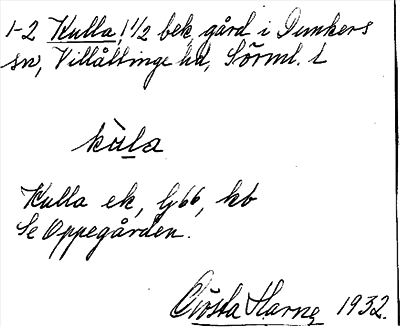 1-2 Kulla, 1 1/2 bek. gård i Dunkers
sn, Villåttinge hd, Sörml. l
kùla
Kulla ek, Lj 66, kb
Se Oppegården.
Gösta Harne 1932.